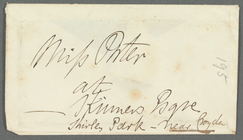 Miss Porter
at
Skinners Esqre
Shirley Park - near Croydon
195